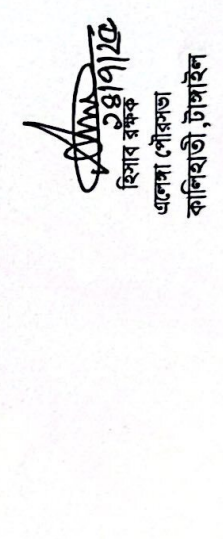 ১৪/৭/২৫
হিসাব রক্ষক
এলেঙ্গা পৌরসভা
কালিহাতী,টাঙ্গাইল